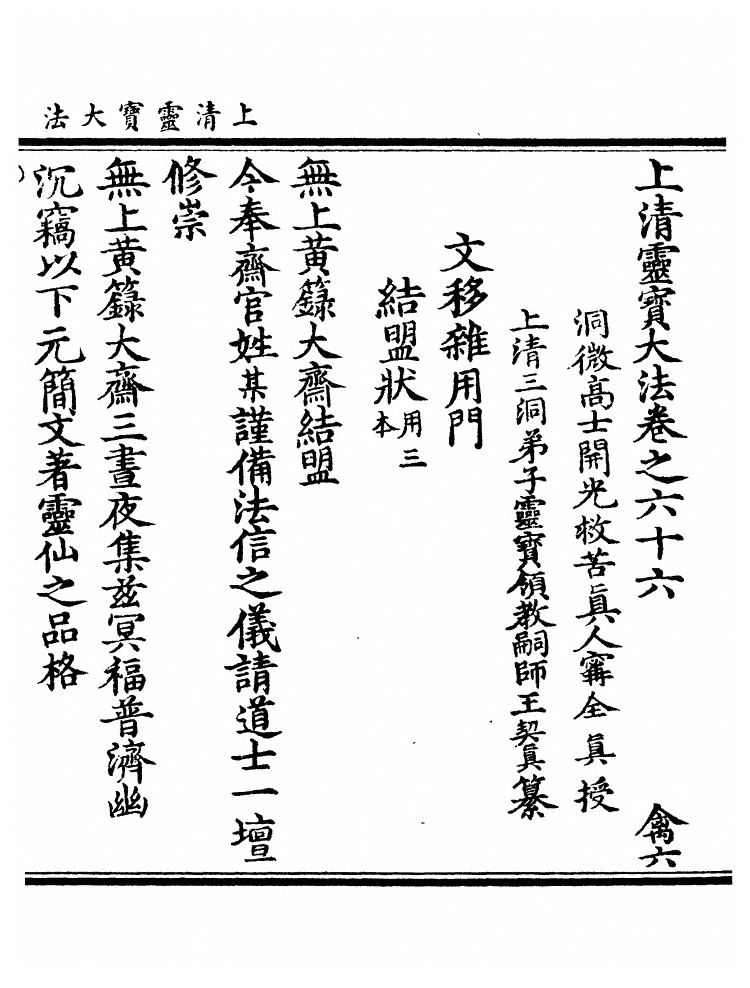 上清靈寶大法
上清靈寶大法卷之六十六 禽六
洞微高士開光救苦眞人寗全眞授
上清三洞弟子靈寶領教嗣師王契眞纂
文移雜用門
結盟狀用三本
無上黄籙大齋結盟
今奉齋官姓某謹備法信之儀請道士一壇
修崇
無上黄籙大齋三晝夜集兹冥福普濟幽
沉竊以下元簡文著靈仙之品格